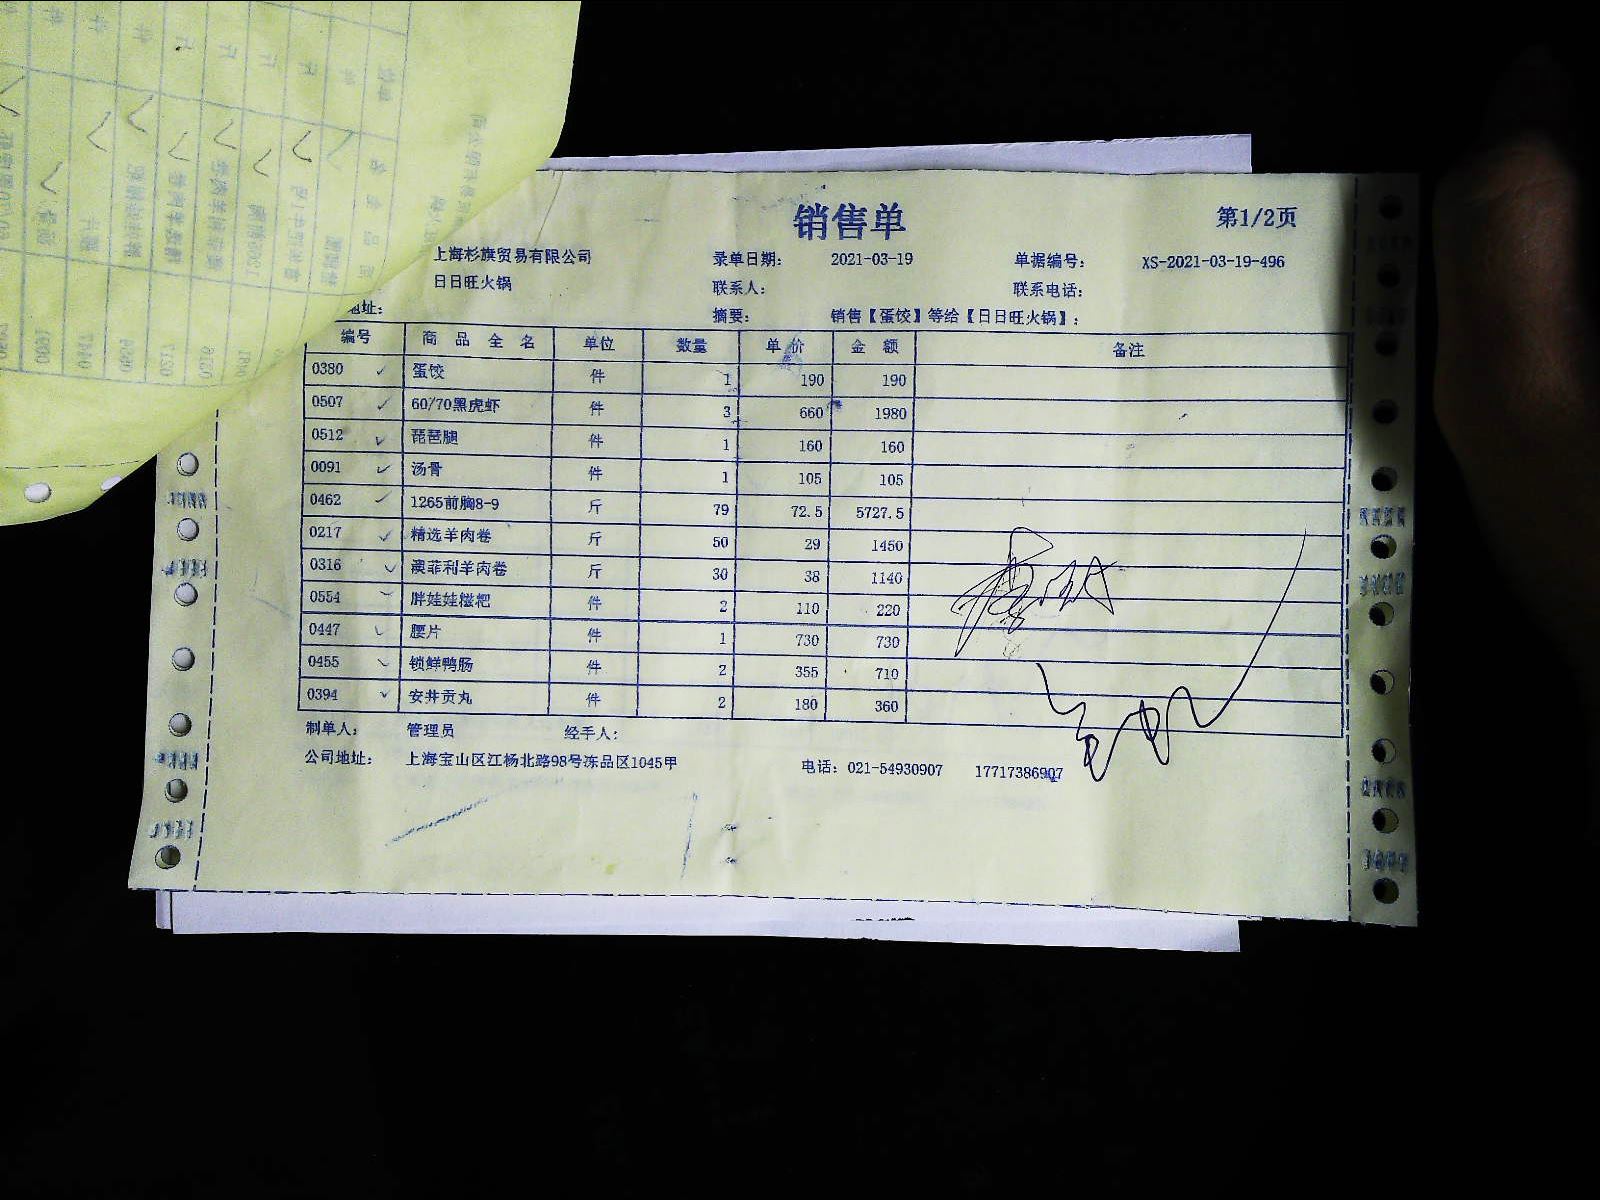 销售单
第1/2页
上海杉旗贸易有限公司 录单日期： 2021-03-19 单据编号： XS-2021-03-19-496
日日旺火锅 联系人： 联系电话：
地址： 摘要： 销售【蛋饺】等给【日日旺火锅】；
编号 商品全名 单位 数量 单价 金额 备注
0380 蛋饺 件 1 190 190
0507 60/70黑虎虾 件 3 660 1980
0512 琵琶腿 件 1 160 160
0091 汤骨 件 1 105 105
0462 1265前胸8-9 斤 79 72.5 5727.5
0217 精选羊肉卷 斤 50 29 1450
0316 澳菲利羊肉卷 斤 30 38 1140
0554 胖娃娃糍粑 件 2 110 220
0447 腰片 件 1 730 730
0455 锁鲜鸭肠 件 2 355 710
0394 安井贡丸 件 2 180 360
制单人： 管理员 经手人：
公司地址： 上海宝山区江杨北路98号冻品区1045甲 电话：021-54930907 17717386907